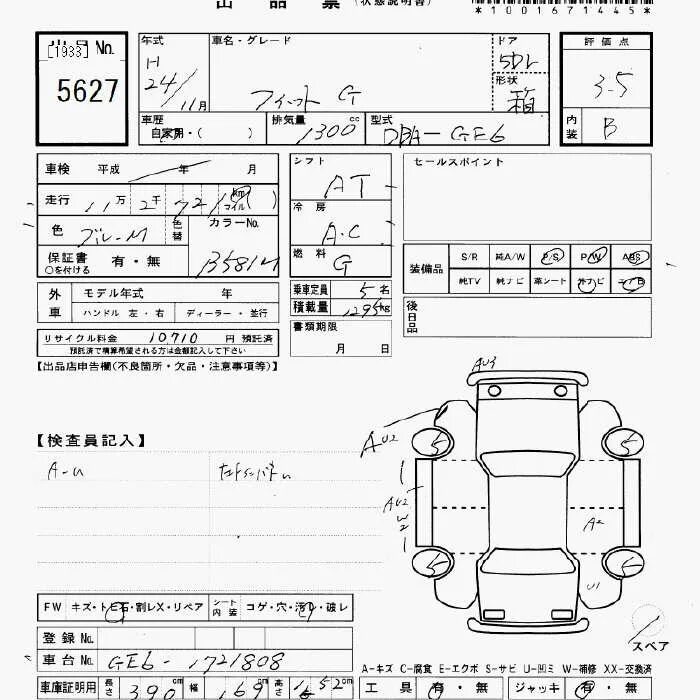 出品票 (状態説明書)
*1001671445*
[1933] No.
5627
年式
H
24/11月
車名・グレード
フィット G
ドア
5DR
形状
箱
評価点
3.5
内装
B
車歴
自家用・( )
排気量
1300 cc
型式
DBA-GE6
車検 平成 年 月
走行 11万 2千 721 km マイル ( )
色 ブルーM 色替 カラーNo.
B581M
保証書 有・無
○を付ける
シフト
AT
冷房
A.C
燃料
G
乗車定員 5名
積載量 1295kg
書類期限
月 日
セールスポイント
装備品
S/R 純A/W P/S P/W ABS
純TV 純ナビ 革シート 外ナビ エアB
後日品
外車
モデル年式 年
ハンドル 左・右 ディーラー・並行
リサイクル料金 10,710 円 預託済
預託済で精算希望される方は金額記入して下さい
【出品店申告欄(不良箇所・欠品・注意事項等)】
【検査員記入】
A-U
AU3
AU2
AU2
W2
A2
U1
5
5
5
5
スペア
FW キズ・トビ石・割レX・リペア シート内装 コゲ・穴・汚レ・破レ
登録 No.
車台 No. GE6-1721808
車庫証明用 長さ 390 cm 幅 169 cm 高さ 152 cm
A-キズ C-腐食 E-エクボ S-サビ U-凹ミ W-補修 XX-交換済
工具 有・無 ジャッキ 有・無